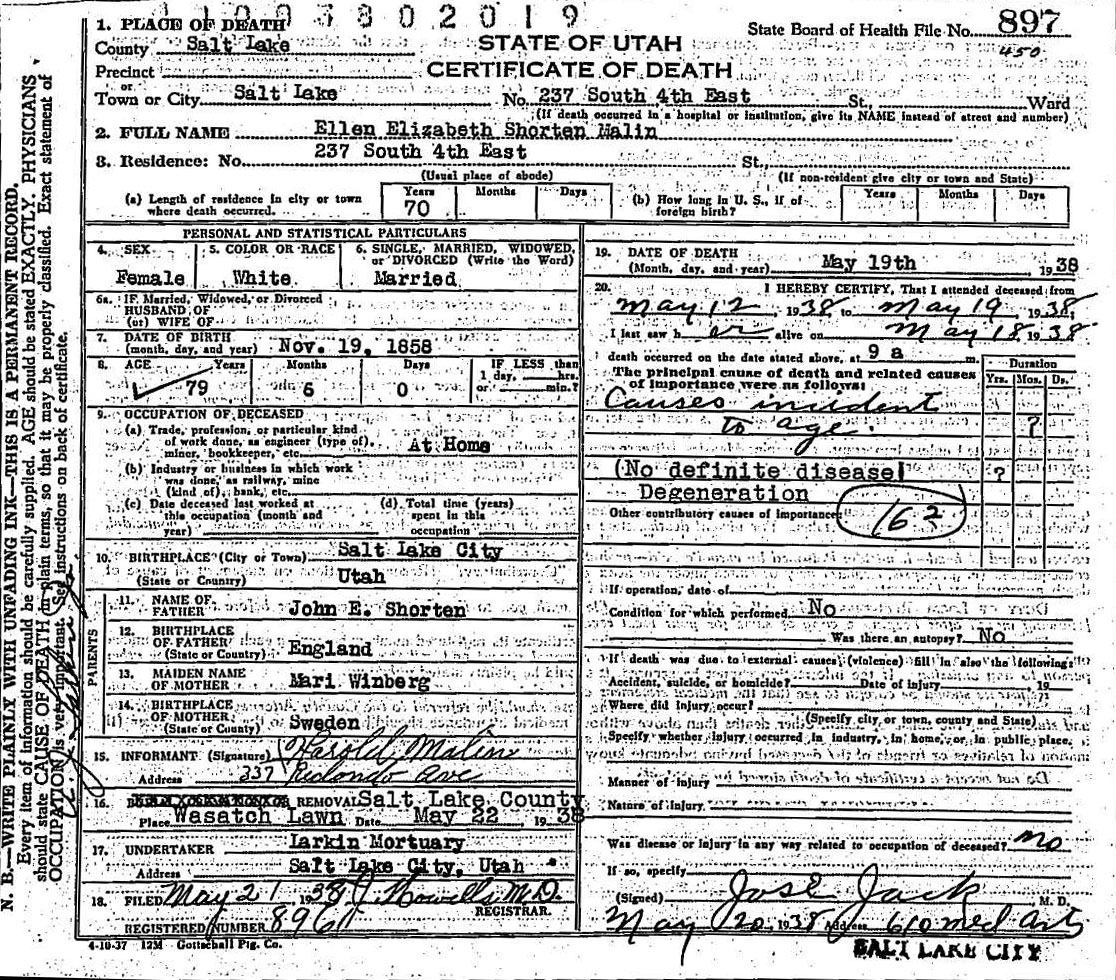 1 1 0 9 3 8 0 2 0 1 9
1. PLACE OF DEATH
County Salt Lake
STATE OF UTAH
State Board of Health File No. 897
450
Precinct
CERTIFICATE OF DEATH
or
Town or City Salt Lake No. 237 South 4th East St., Ward
(If death occurred in a hospital or institution, give its NAME instead of street and number)
2. FULL NAME Ellen Elizabeth Shorten Malin
3. Residence: No. 237 South 4th East St.
(Usual place of abode) (If non-resident give city or town and State)
(a) Length of residence in city or town where death occurred. Years 70 Months Days
(b) How long in U. S., if of foreign birth? Years Months Days
PERSONAL AND STATISTICAL PARTICULARS
4. SEX
Female
5. COLOR OR RACE
White
6. SINGLE, MARRIED, WIDOWED, or DIVORCED (Write the Word)
Married
6a. IF Married, Widowed, or Divorced
HUSBAND OF
(or) WIFE OF
7. DATE OF BIRTH
(month, day, and year) Nov. 19, 1858
8. AGE Years Months Days IF LESS than
79 6 0 1 day, hrs.
or min.?
9. OCCUPATION OF DECEASED
(a) Trade, profession, or particular kind
of work done, as engineer (type of),
miner, bookkeeper, etc. At Home
(b) Industry or business in which work
was done, as railway, mine
(kind of), bank, etc.
(c) Date deceased last worked at
this occupation (month and
year)
(d) Total time (years)
spent in this
occupation
10. BIRTHPLACE (City or Town) Salt Lake City
(State or Country) Utah
PARENTS
11. NAME OF FATHER John E. Shorten
12. BIRTHPLACE OF FATHER
(State or Country) England
13. MAIDEN NAME OF MOTHER Mari Winberg
14. BIRTHPLACE OF MOTHER
(State or County) Sweden
15. INFORMANT (Signature) Harold Malin
Address 237 Redondo Ave
16. REMOVAL Salt Lake County
Place Wasatch Lawn Date May 22, 1938
17. UNDERTAKER Larkin Mortuary
Address Salt Lake City, Utah
18. FILED May 21 1938 J Howells M.D.
REGISTRAR.
REGISTERED NUMBER 8961
4-10-37 12M Gottschall Ptg. Co.
19. DATE OF DEATH
(Month, day, and year) May 19th 1938
20. I HEREBY CERTIFY, That I attended deceased from
May 12 1938 to May 19 1938,
I last saw her alive on May 18, 1938
death occurred on the date stated above, at 9 a m.
The principal cause of death and related causes
of importance were as follows:
Duration
Yrs. Mos. Ds.
Causes incident
to age. ?
(No definite disease) ?
Degeneration
Other contributory causes of importance: 162
If operation, date of
Condition for which performed No
Was there an autopsy? No
If death was due to external causes (violence) fill in also the following:
Accident, suicide, or homicide? Date of injury 19
Where did injury occur?
(Specify city or town, county and State)
Specify whether injury occurred in industry, in home, or in public place.
Manner of injury
Nature of injury
Was disease or injury in any way related to occupation of deceased? no
If so, specify
(Signed) Jose Jack M. D.
May 20, 1938 Address 610 Med Arts
SALT LAKE CITY
N. B.—WRITE PLAINLY WITH UNFADING INK—THIS IS A PERMANENT RECORD.
Every item of information should be carefully supplied. AGE should be stated EXACTLY. PHYSICIANS
should state CAUSE OF DEATH in plain terms, so that it may be properly classified. Exact statement of
OCCUPATION is very important. See instructions on back of certificate.